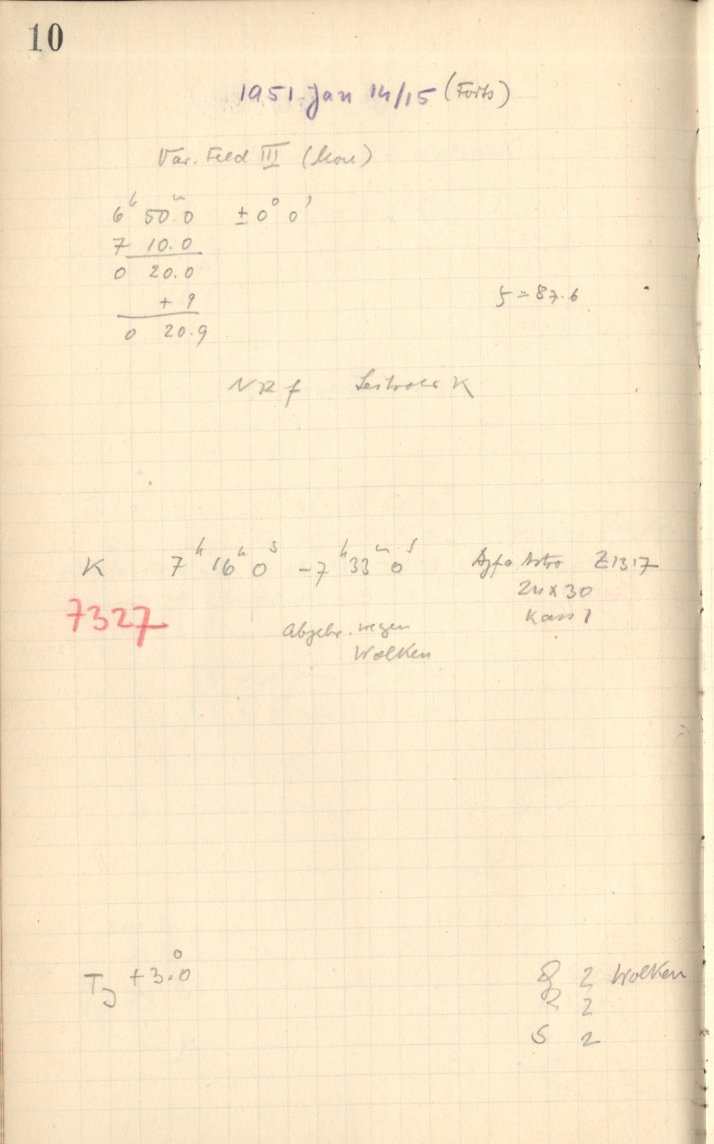 10
1951 Jan 14/15 (Forts)
Var. Feld III
6ʰ 50ᵐ.0 ±0° 0'
7 10.0
0 20.0
+ 9
0 20.9
ζ = 87.6
NR f K
K 7ʰ 16ᵐ 0ˢ – 7ʰ 33ᵐ 0ˢ Agfa Astro Z1317
24 x 30
Kass 1
7327
Abgebr. wegen
Wolken
TJ +3.0°
2 Wolken
R 2
S 2